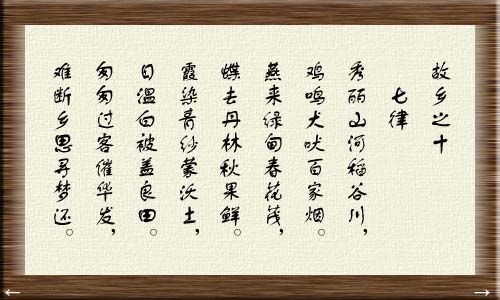 故乡之十
七律
秀丽山河稻谷川，
鸡鸣犬吠百家烟。
燕来绿甸春花茂，
蝶去丹林秋果鲜。
霞染青纱蒙沃土，
日温白被盖良田。
匆匆过客催华发，
难断乡思寻梦还。